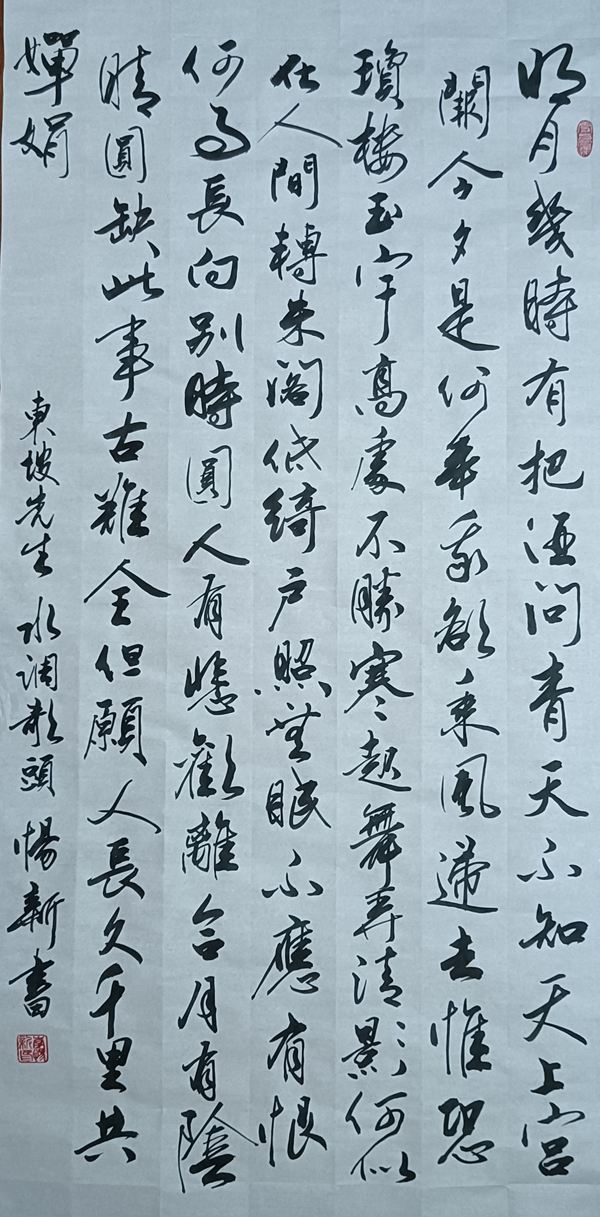 明月幾時有把酒問青天不知天上宮
闕今夕是何年我欲乘風歸去惟恐
瓊樓玉宇高處不勝寒起舞弄清影何似
在人間轉朱閣低綺戶照無眠不應有恨
何事長向別時圓人有悲歡離合月有陰
晴圓缺此事古難全但願人長久千里共
嬋娟
東坡先生水調歌頭 惕新書